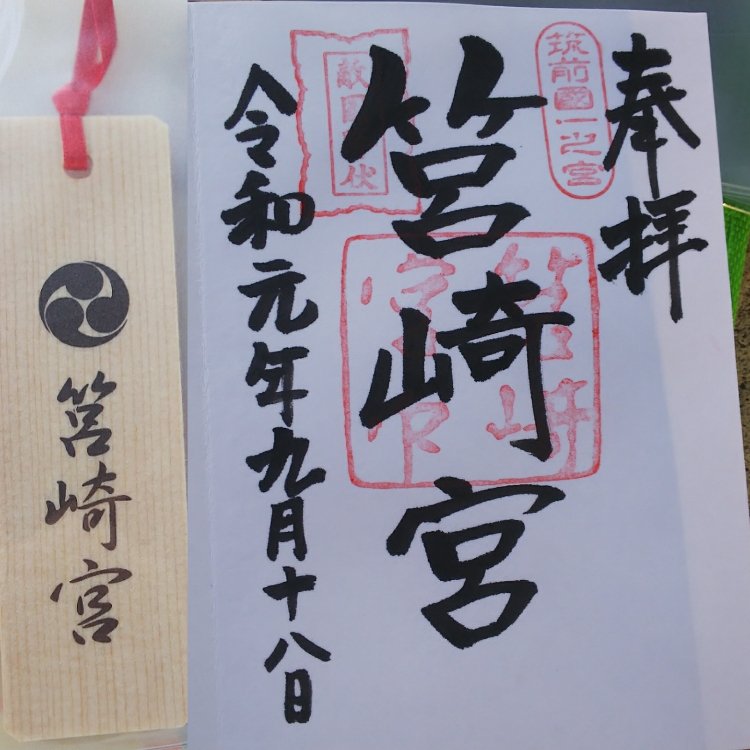 奉拝
筑前國一之宮
筥崎宮
敵国降伏
令和元年九月十八日
筥崎宮